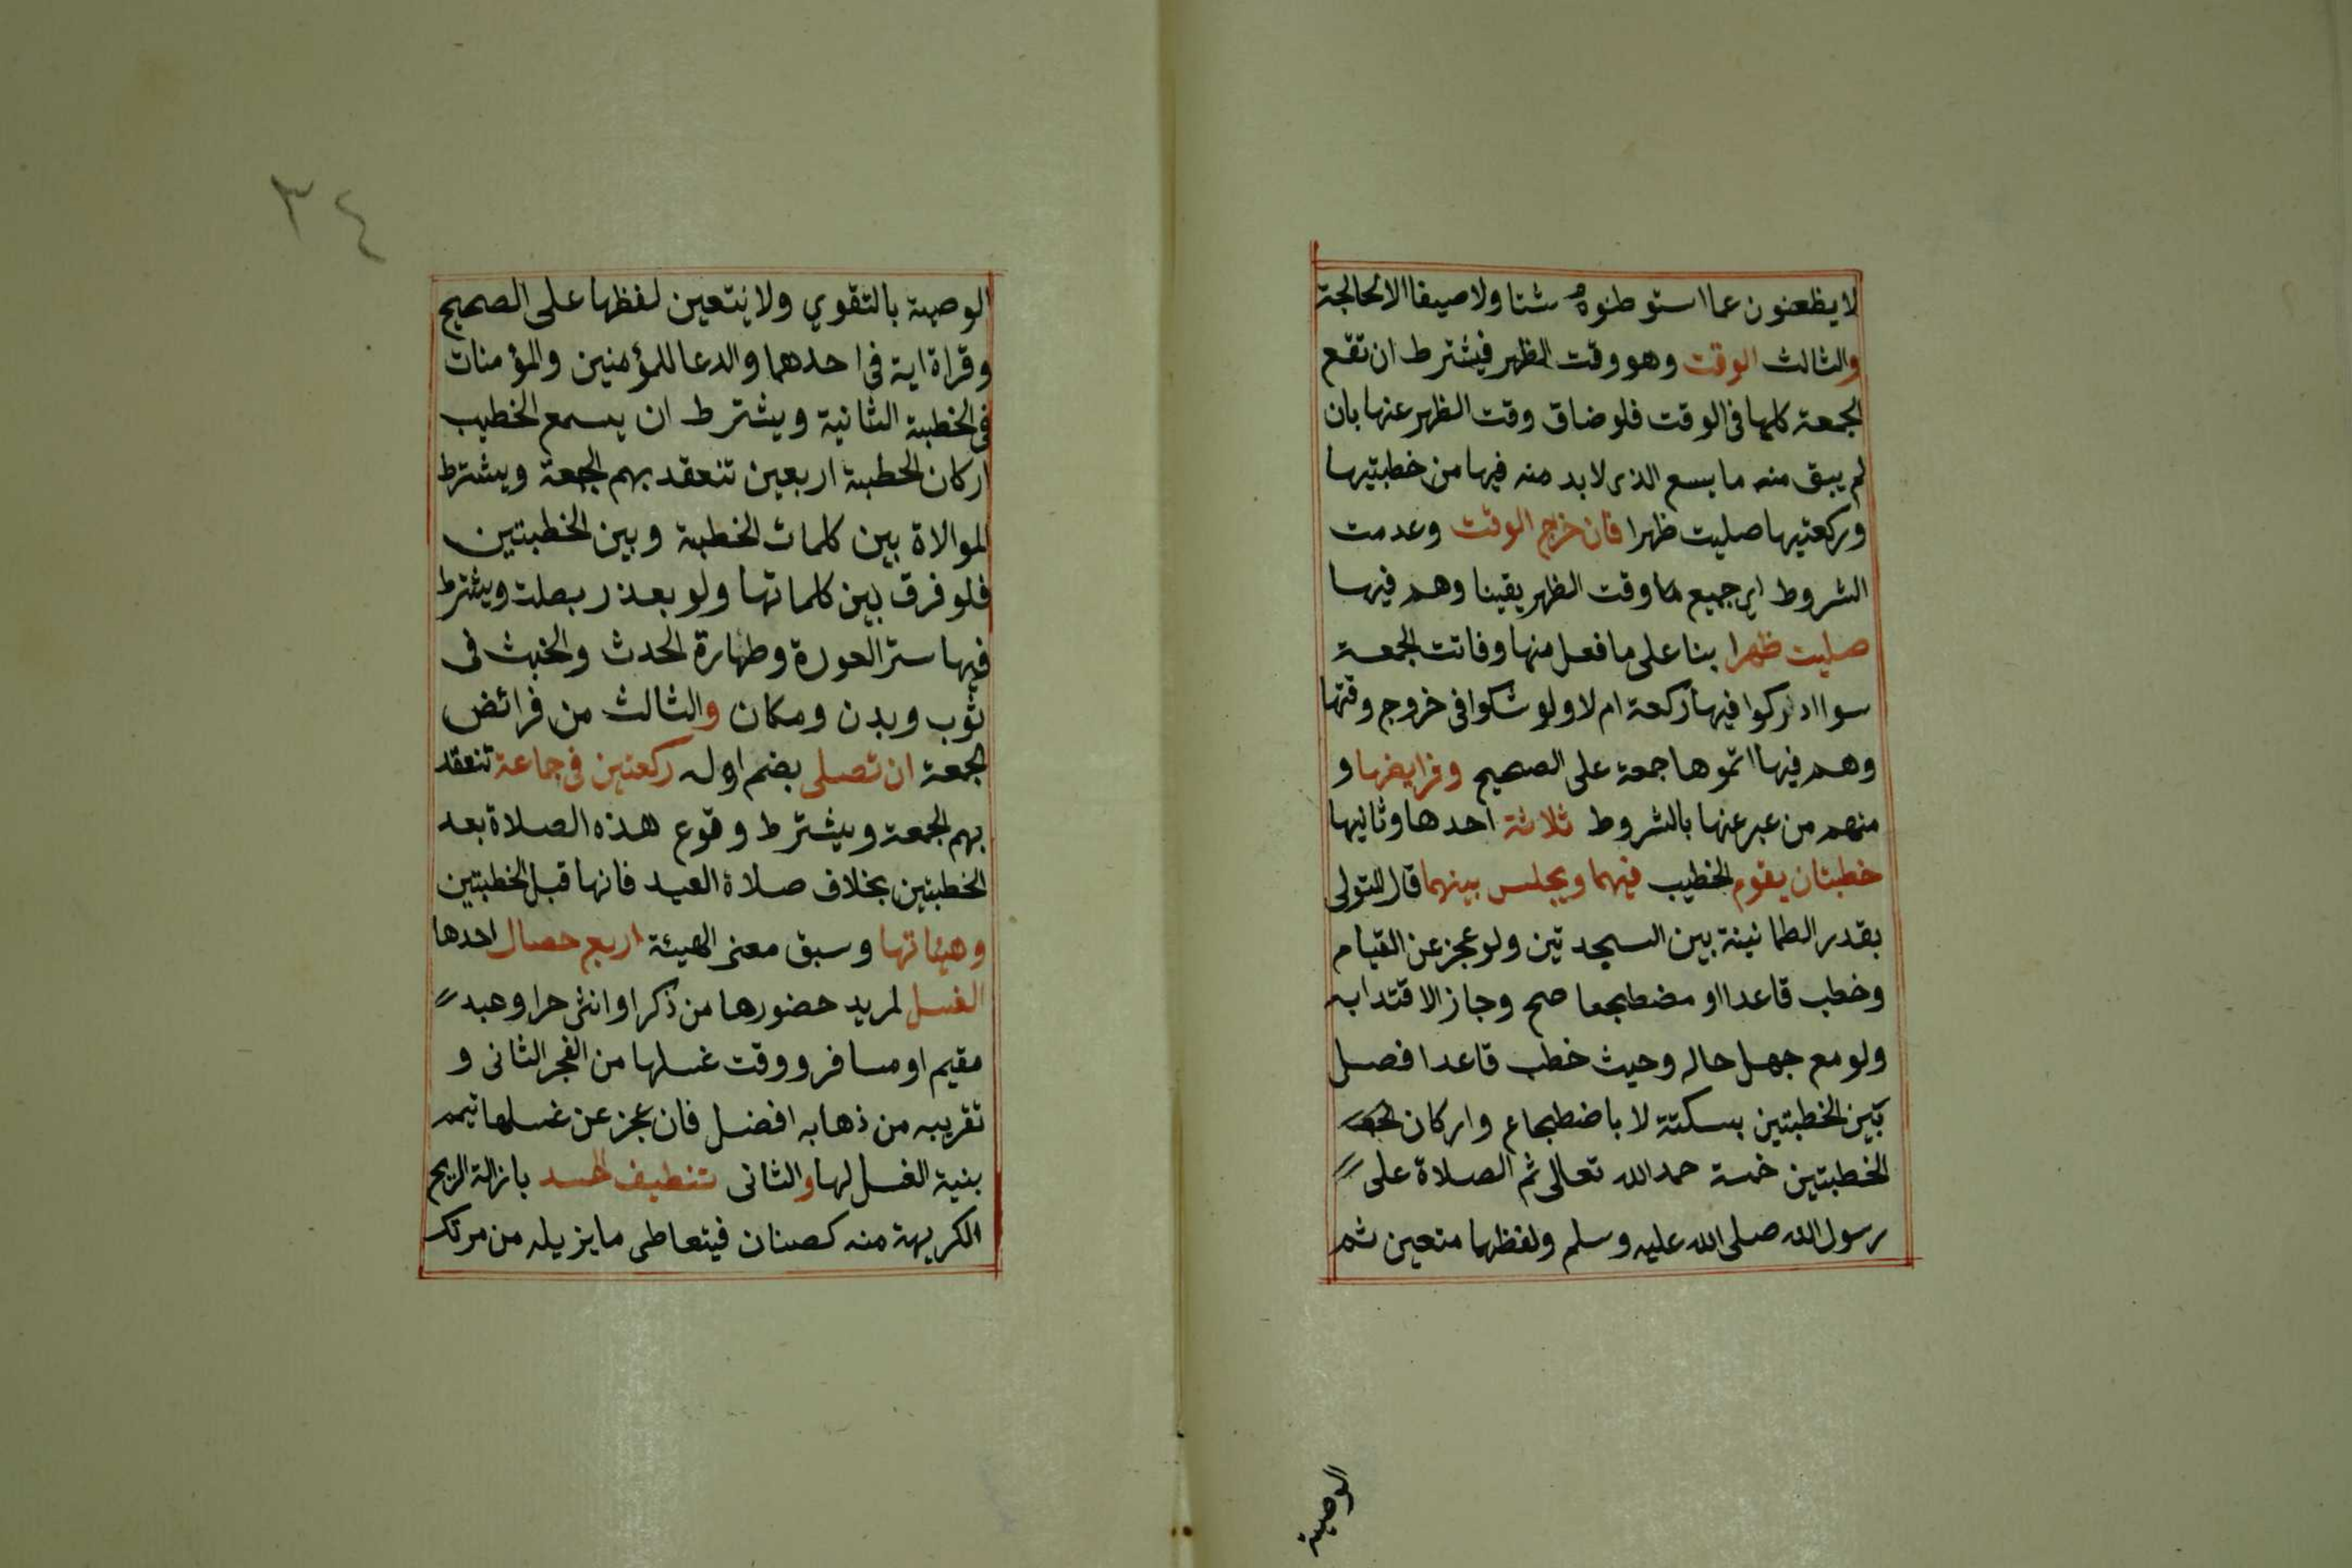 لا يظعنون عما استوطنوه شتا ولا صيفا الا لحاجة
والثالث الوقت وهو وقت الظهر فيشترط ان تقع
الجمعة كلها في الوقت فلو ضاق وقت الظهر عنها بان
لم يبق منه ما يسع الذي لابد منه فيها من خطبتيها
وركعتيها صليت ظهرا فان خرج الوقت وعدمت
الشروط اي جميع وقت الظهر يقينا وهم فيها
صليت ظهرا بنا على ما فعل منها وفاتت الجمعة
سوا ادركوا فيها ركعة ام لا ولو شكوا في خروج وقتها
وهم فيها اتموها جمعة على الصحيح وفرايضها و
منهم من عبر عنها بالشروط ثلاثة احدها وثانيها
خطبتان يقوم الخطيب فيهما ويجلس بينهما قال المتولي
بقدر الطمانينة بين السجدتين ولو عجز عن القيام
وخطب قاعدا او مضطجعا صح وجاز الاقتدا به
ولو مع جهل حاله وحيث خطب قاعدا فصل
بين الخطبتين بسكتة لا باضطجاع واركان
الخطبتين خمسة حمد الله تعالى ثم الصلاة على
رسول الله صلى الله عليه وسلم ولفظها متعين ثم
الوصية
٣٤
الوصية بالتقوي ولا يتعين لفظها على الصحيح
وقراة اية في احدهما والدعا للمؤمنين والمؤمنات
في الخطبة الثانية ويشترط ان يسمع الخطيب
اركان الخطبة اربعين تنعقد بهم الجمعة ويشترط
الموالاة بين كلمات الخطبة وبين الخطبتين
فلو فرق بين كلماتها ولو بعذر بطلت ويشترط
فيها ستر العورة وطهارة الحدث والخبث في
ثوب وبدن ومكان والثالث من فرائض
الجمعة ان تصلي بضم اوله ركعتين في جماعة تنعقد
بهم الجمعة ويشترط وقوع هذه الصلاة بعد
الخطبتين بخلاف صلاة العيد فانها قبل الخطبتين
وهيئاتها وسبق معنى الهيئة اربع خصال احدها
الغسل لمريد حضورها من ذكر او انثى حر او عبد
مقيم او مسافر ووقت غسلها من الفجر الثاني و
تقريبه من ذهابه افضل فان عجز عن غسلها تيمم
بنية الغسل لها والثاني تنظيف الجسد بازالة الريح
الكريهة منه كصنان فيتعاطى ما يزيله من مرتك